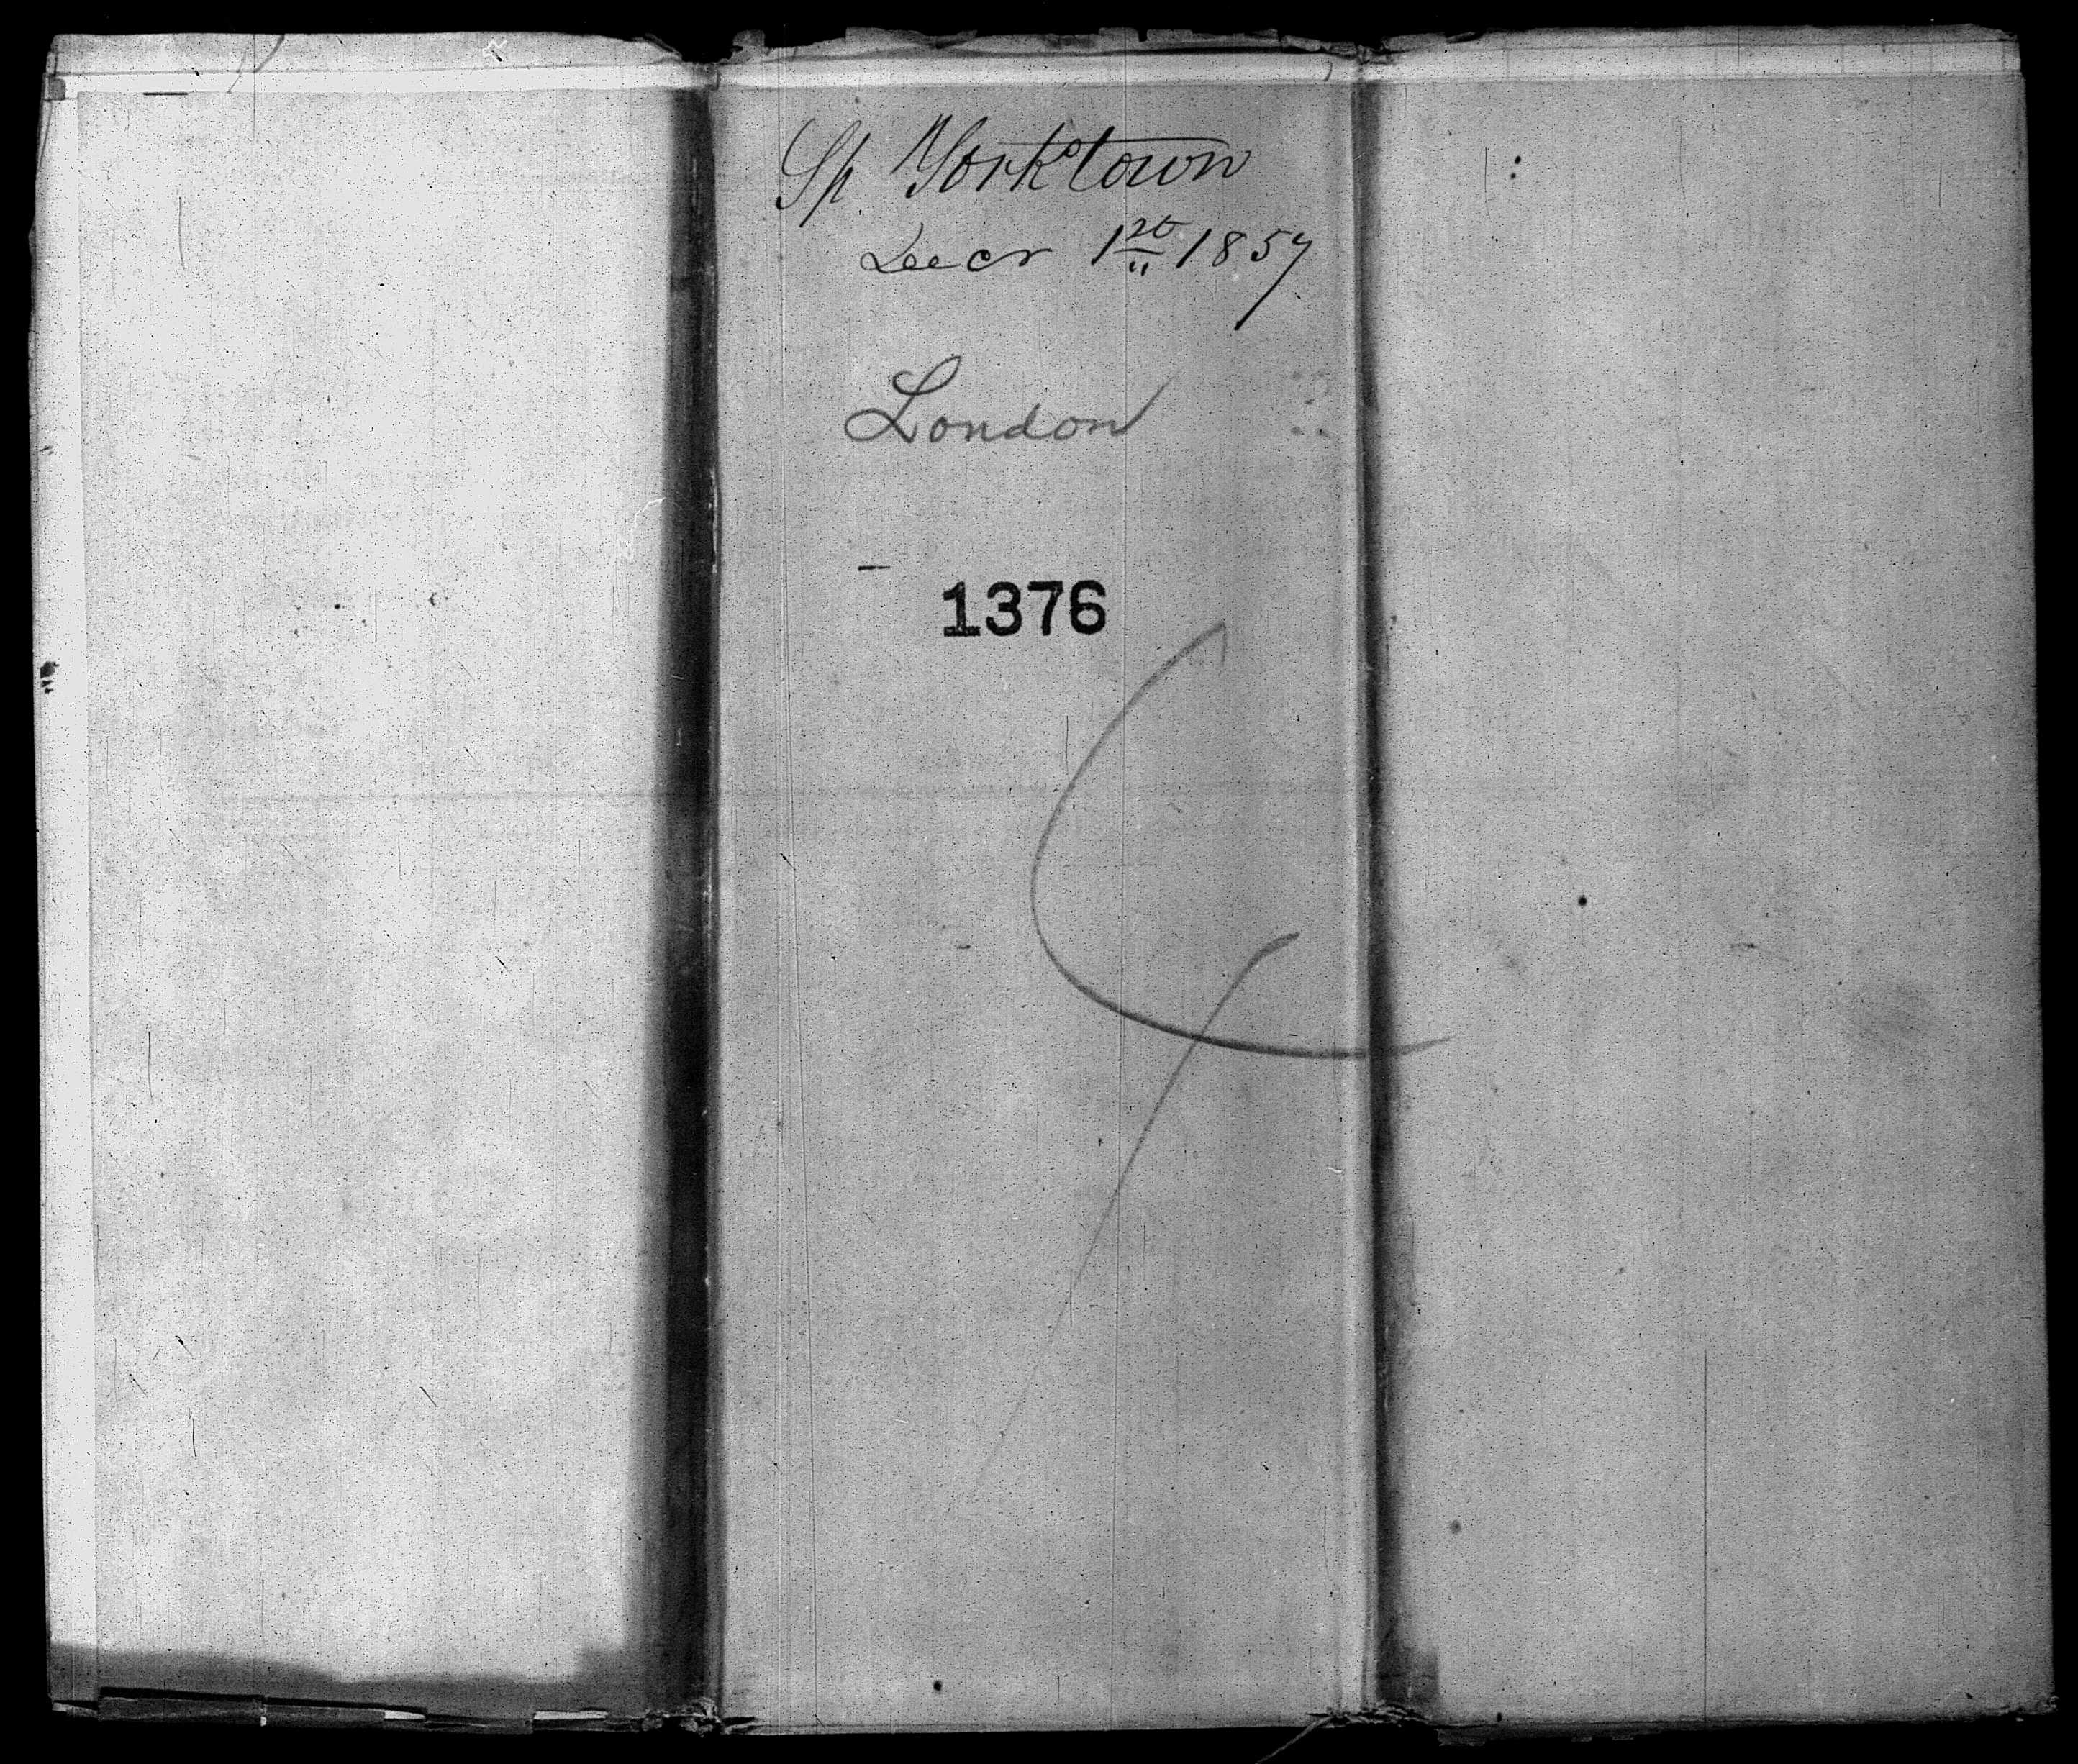 Sp Yorktown
Decr 1st 1857
London
1376